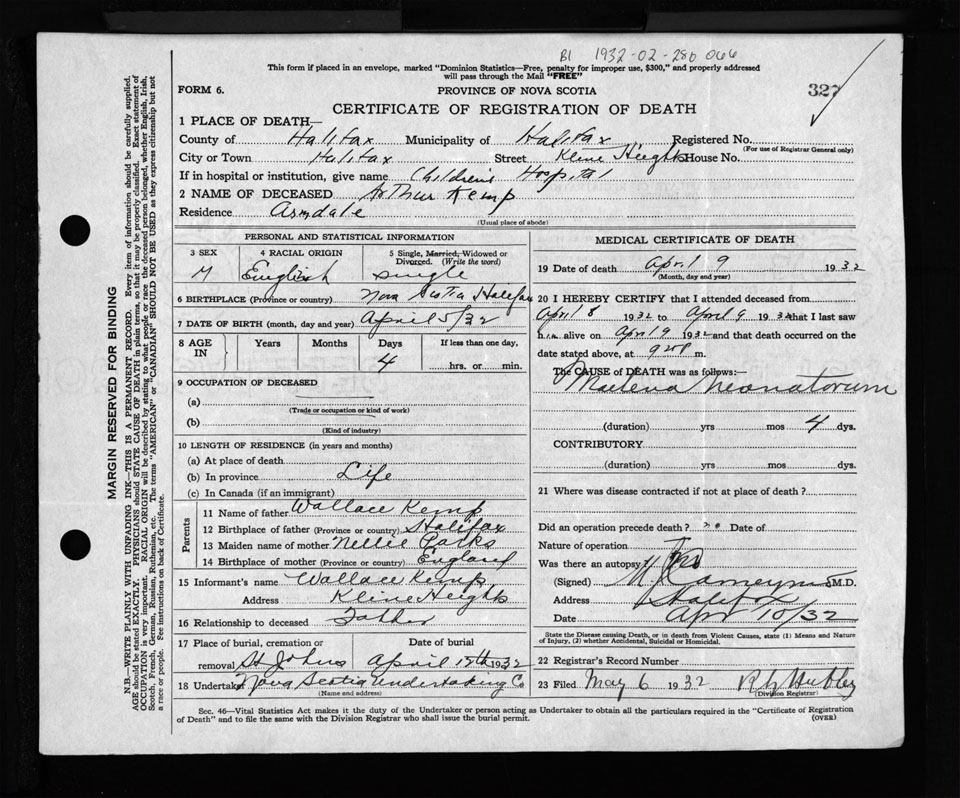 B1 1932-02-280066
This form if placed in an envelope, marked "Dominion Statistics—Free, penalty for improper use, $300," and properly addressed
will pass through the Mail "FREE"
FORM 6. PROVINCE OF NOVA SCOTIA 327
CERTIFICATE OF REGISTRATION OF DEATH
1 PLACE OF DEATH—
County of Halifax Municipality of Halifax Registered No.
(For use of Registrar General only)
City or Town Halifax Street Kline Heights House No.
If in hospital or institution, give name Children's Hospital
2 NAME OF DECEASED Arthur Kemp
Residence Armdale
(Usual place of abode)
PERSONAL AND STATISTICAL INFORMATION
3 SEX 4 RACIAL ORIGIN 5 Single, Married, Widowed or Divorced. (Write the word)
M English single
6 BIRTHPLACE (Province or country) Nova Scotia Halifax
7 DATE OF BIRTH (month, day and year) April 5/32
8 AGE IN Years Months Days If less than one day,
4 hrs. or min.
9 OCCUPATION OF DECEASED
(a)
(Trade or occupation or kind of work)
(b)
(Kind of industry)
10 LENGTH OF RESIDENCE (in years and months)
(a) At place of death
(b) In province Life
(c) In Canada (if an immigrant)
Parents
11 Name of father Wallace Kemp
12 Birthplace of father (Province or country) Halifax
13 Maiden name of mother Nellie Parks
14 Birthplace of mother (Province or country) England
15 Informant's name Wallace Kemp
Address Kline Heights
16 Relationship to deceased Father
17 Place of burial, cremation or Date of burial
removal St Johns April 12th 1932
18 Undertaker Nova Scotia Undertaking Co
(Name and address)
MEDICAL CERTIFICATE OF DEATH
19 Date of death April 9 1932
(Month, day and year)
20 I HEREBY CERTIFY that I attended deceased from
April 8 1932 to April 9 1932 that I last saw
him alive on Apr 9 1932 and that death occurred on the
date stated above, at m.
The CAUSE of DEATH was as follows:—
Maelena Neonatorum
(duration) yrs mos 4 dys.
CONTRIBUTORY
(duration) yrs mos dys.
21 Where was disease contracted if not at place of death?
Did an operation precede death? no Date of
Nature of operation
Was there an autopsy? no
(Signed) M.D.
Address Halifax
Date Apr 10/32
State the Disease causing Death, or in death from Violent Causes, state (1) Means and Nature
of Injury, (2) whether Accidental, Suicidal or Homicidal.
22 Registrar's Record Number
23 Filed May 6 1932 Hubley
(Division Registrar)
Sec. 46—Vital Statistics Act makes it the duty of the Undertaker or person acting as Undertaker to obtain all the particulars required in the "Certificate of Registration
of Death" and to file the same with the Division Registrar who shall issue the burial permit. (OVER)
MARGIN RESERVED FOR BINDING
N.B.—WRITE PLAINLY WITH UNFADING INK—THIS IS A PERMANENT RECORD. Every item of information should be carefully supplied.
AGE should be stated EXACTLY. PHYSICIANS should STATE CAUSE OF DEATH in plain terms, so that it may be properly classified. Exact statement of
OCCUPATION is very important. RACIAL ORIGIN will be described by stating to what people or race the deceased person belonged, whether English, Irish,
Scotch, French, German, Russian, Ruthenian, etc. The terms "AMERICAN" or "CANADIAN" SHOULD NOT BE USED as they express citizenship but not
a race or people. See instructions on back of Certificate.